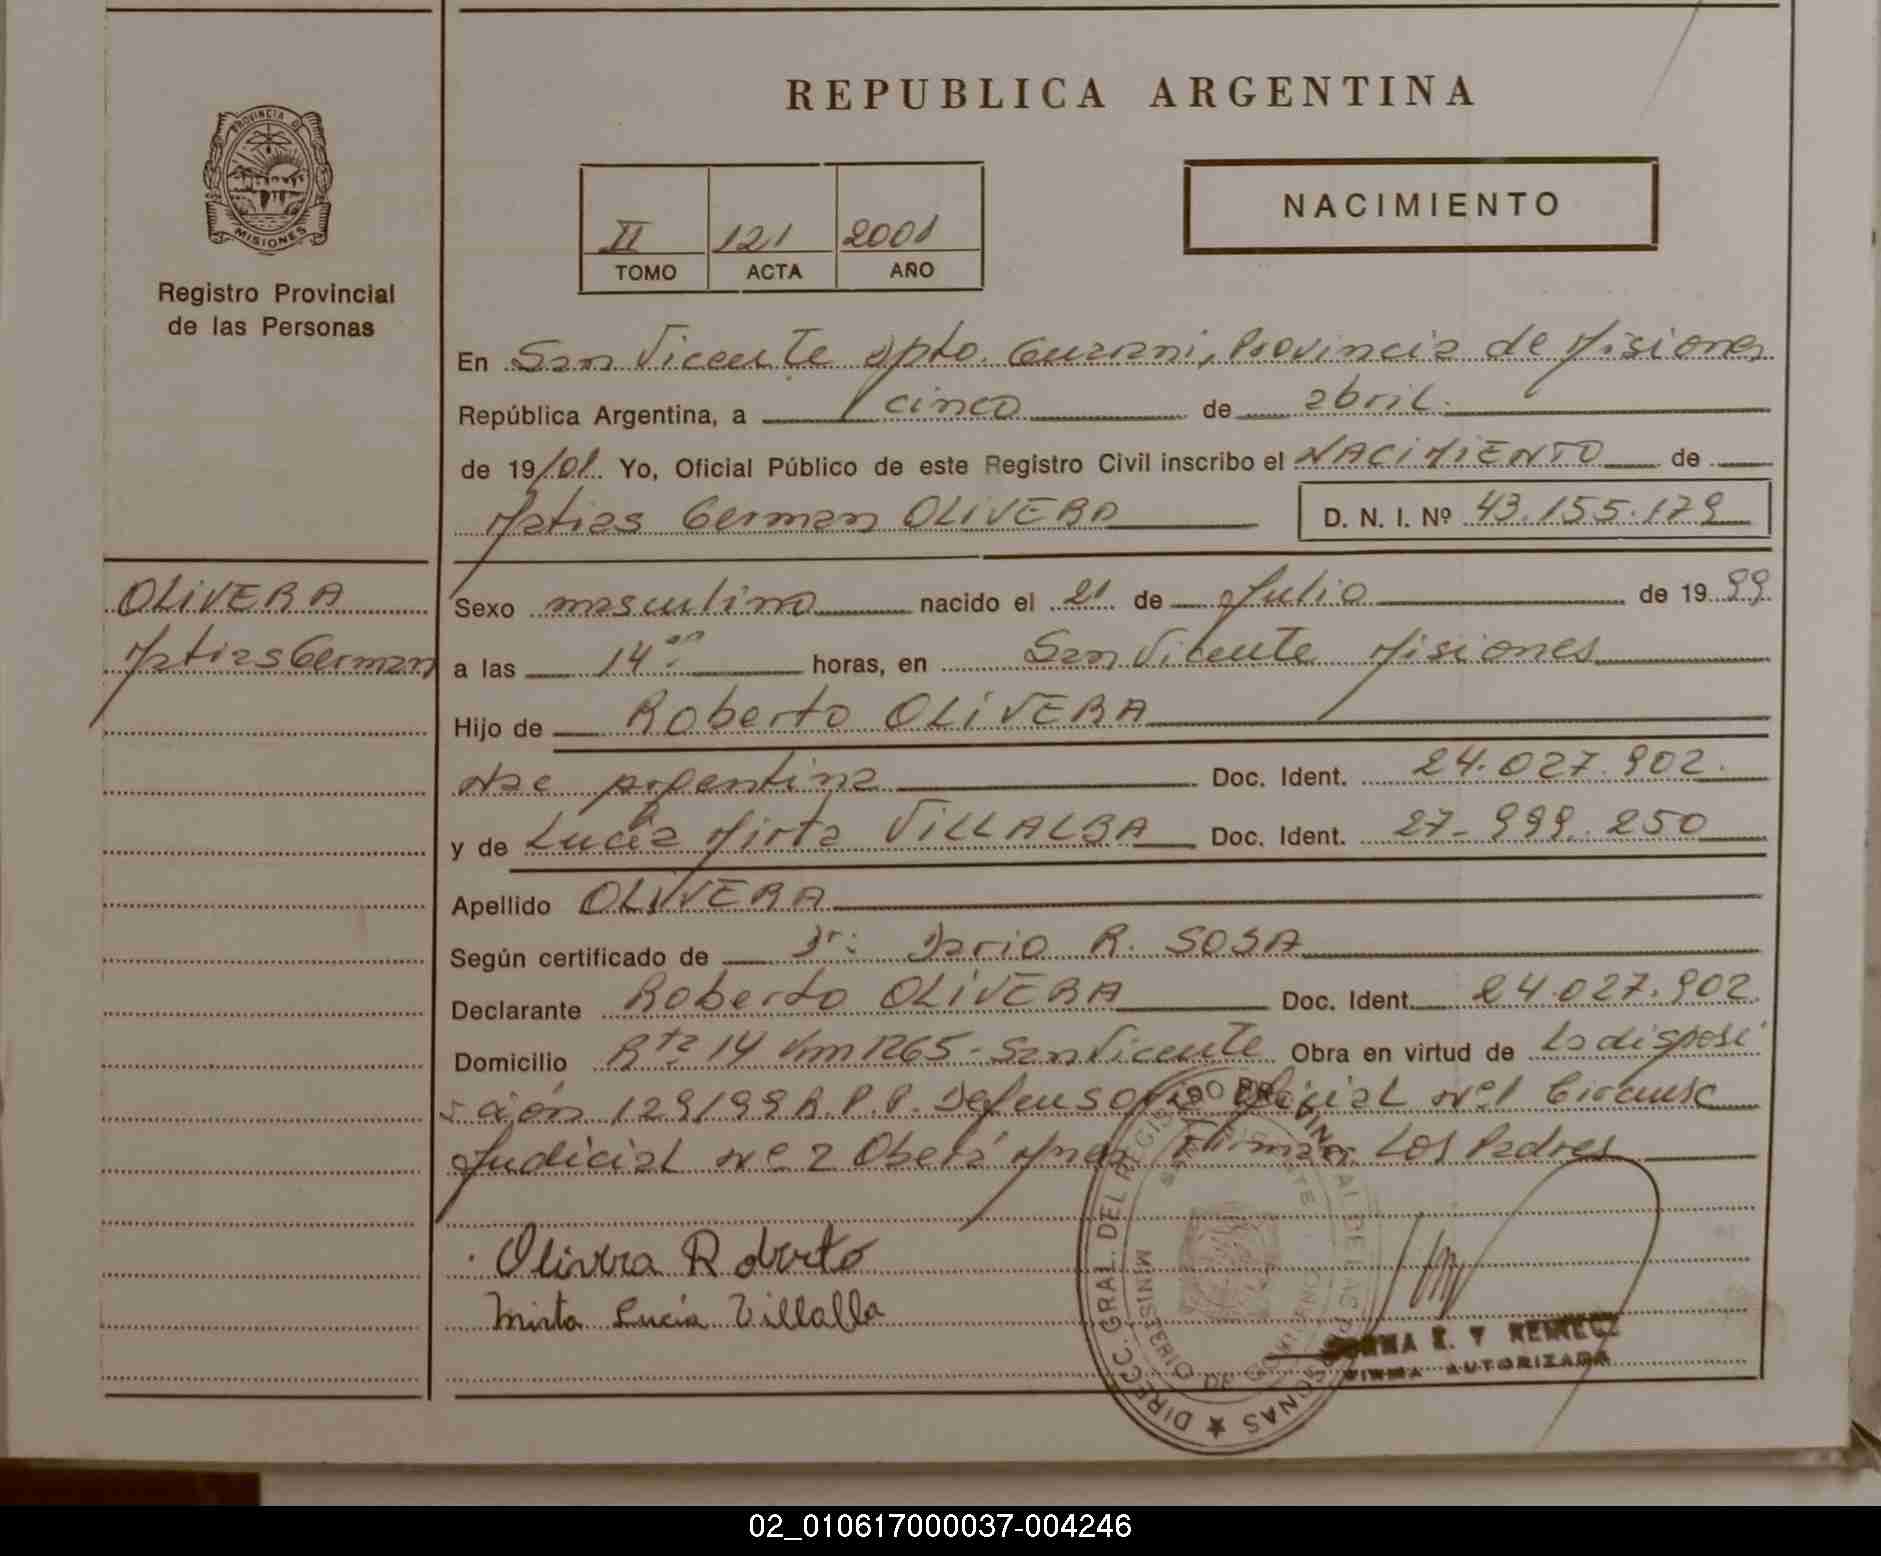 PROVINCIA DE
MISIONES
Registro Provincial
de las Personas
REPUBLICA ARGENTINA
II 121 2001
TOMO ACTA AÑO
NACIMIENTO
En San Vicente Dpto. Guarani, Provincia de Misiones
República Argentina, a cinco de abril.
de 19/01. Yo, Oficial Público de este Registro Civil inscribo el NACIMIENTO de
Matias German OLIVERA D. N. I. Nº 43.155.179
OLIVERA
Matias German
Sexo masculino nacido el 21 de Julio de 1999
a las 14 horas, en San Vicente Misiones
Hijo de Roberto OLIVERA
Nac argentina Doc. Ident. 24.027.902.
y de Lucia Mirta VILLALBA Doc. Ident. 27-999.250
Apellido OLIVERA
Según certificado de Dr: Dario R. SOSA
Declarante Roberto OLIVERA Doc. Ident. 24.027.902
Domicilio Rta 14 Km 1265-San Vicente Obra en virtud de la disposi
ción 129/99 R.P.P. Defensoria Oficial Nº1 Circunsc
Judicial Nº 2 Oberá Mnes Firman Los Padres
Olivera Roberto
Mirta Lucia Villalba
DIRECC. GRAL. DEL REGISTRO PROVINCIAL DE LAS PERSONAS
MINISTERIO DE GOBIERNO
FIRMA AUTORIZADA
02_010617000037-004246